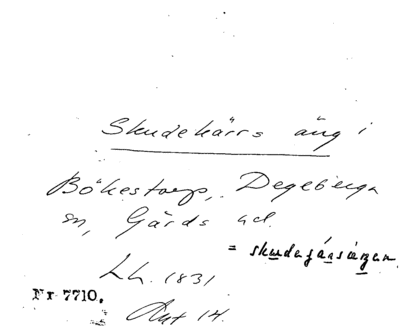 Skudekärrs äng i
Bökestorp, Degeberga
sn, Gärds hd.
= skudaɟársiŋan
Lh. 1831
Nr 7710. Akt 14.